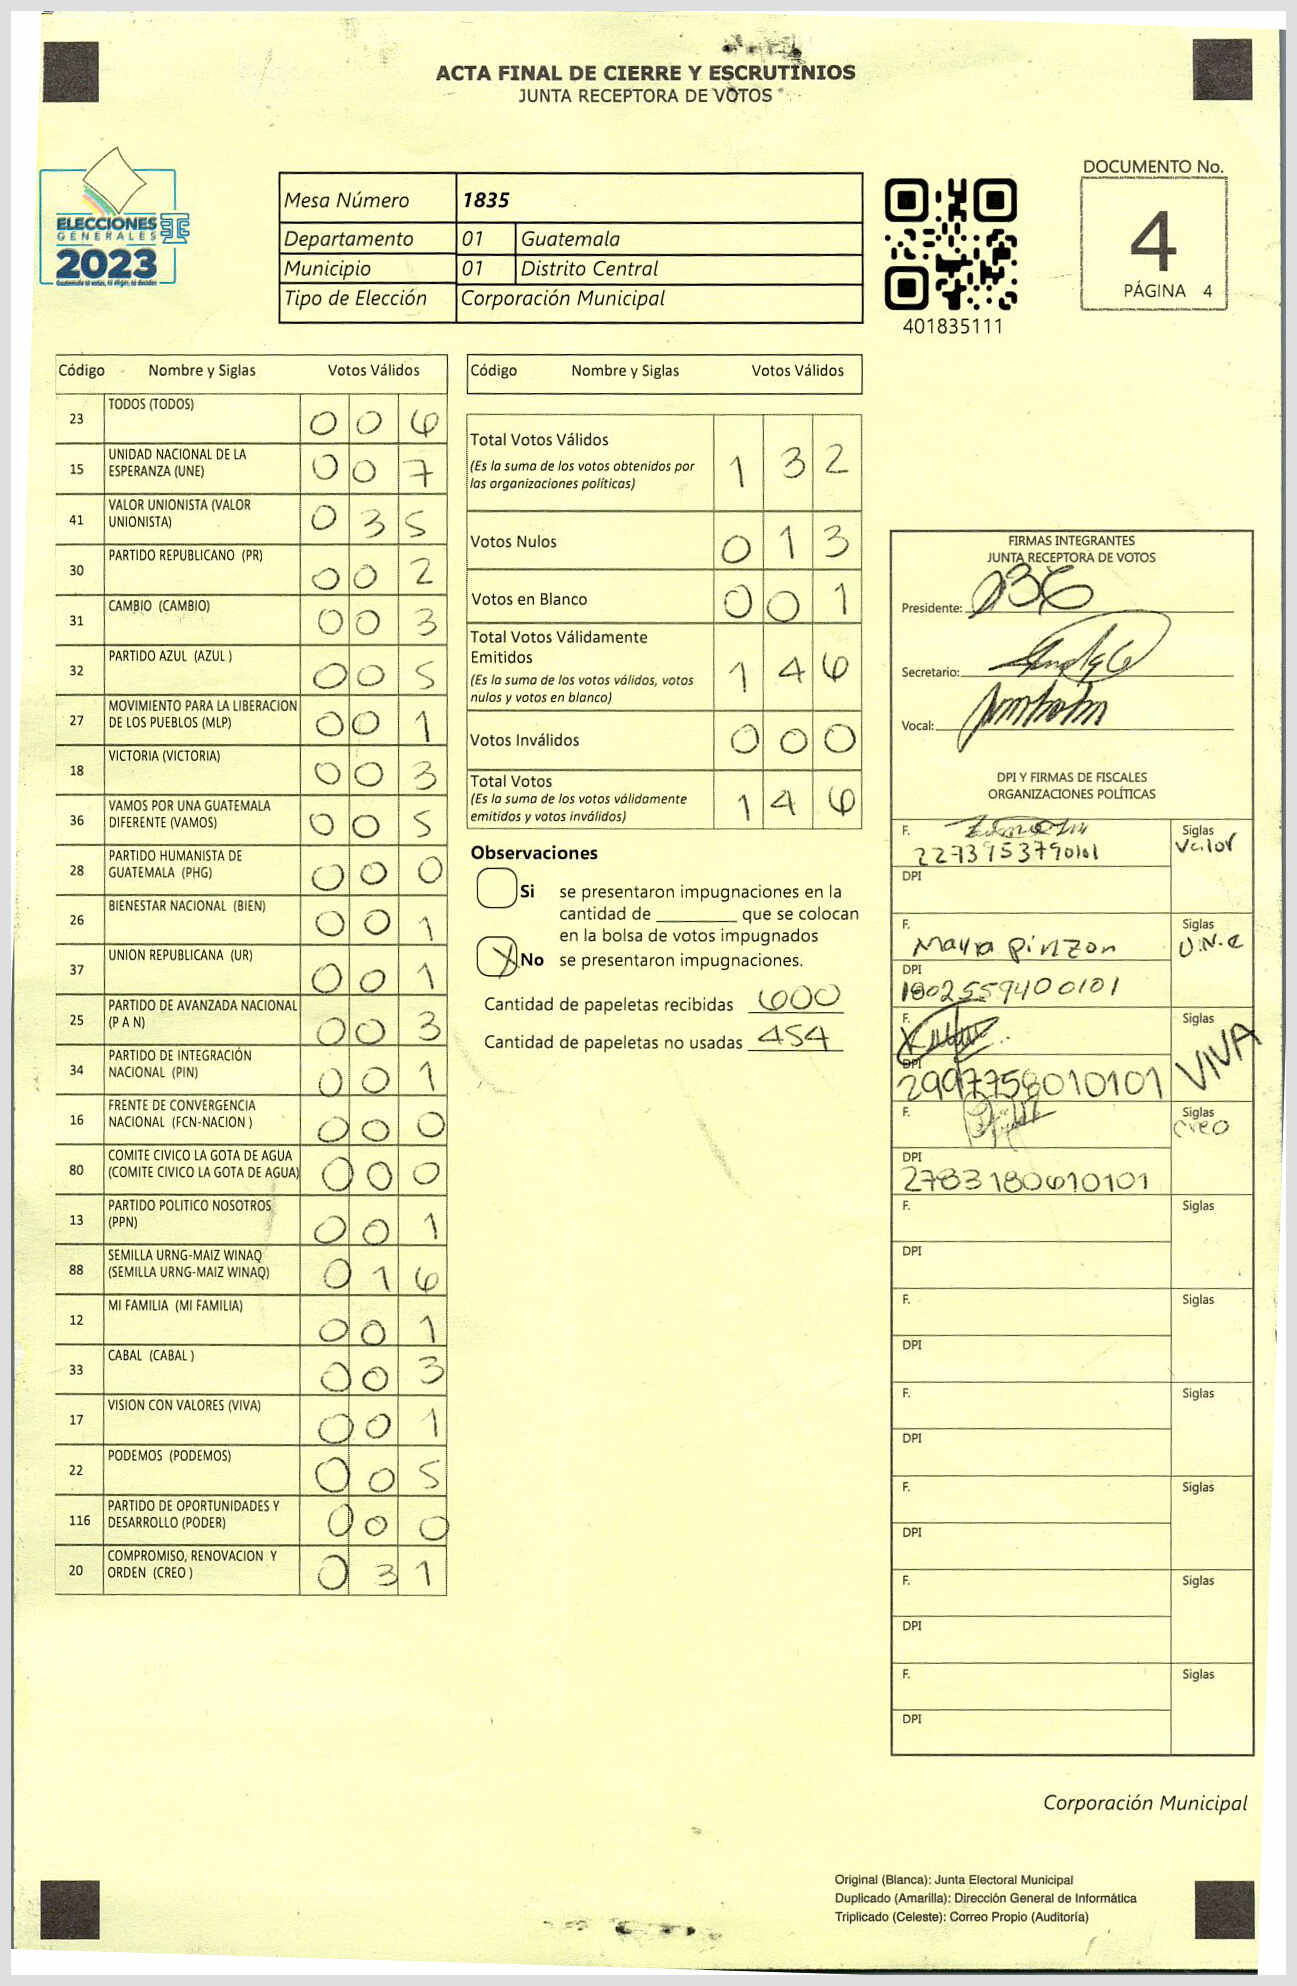 ACTA FINAL DE CIERRE Y ESCRUTINIOS
JUNTA RECEPTORA DE VOTOS
ELECCIONES
GENERALES
2023
Guatemala tú votas, tú eliges, tú decides
Mesa Número 1835
Departamento 01 Guatemala
Municipio 01 Distrito Central
Tipo de Elección Corporación Municipal
401835111
DOCUMENTO No.
4
PÁGINA 4
Código Nombre y Siglas Votos Válidos
23 TODOS (TODOS) 0 0 6
15 UNIDAD NACIONAL DE LA
ESPERANZA (UNE) 0 0 7
41 VALOR UNIONISTA (VALOR
UNIONISTA) 0 3 5
30 PARTIDO REPUBLICANO (PR) 0 0 2
31 CAMBIO (CAMBIO) 0 0 3
32 PARTIDO AZUL (AZUL ) 0 0 5
27 MOVIMIENTO PARA LA LIBERACION
DE LOS PUEBLOS (MLP) 0 0 1
18 VICTORIA (VICTORIA) 0 0 3
36 VAMOS POR UNA GUATEMALA
DIFERENTE (VAMOS) 0 0 5
28 PARTIDO HUMANISTA DE
GUATEMALA (PHG) 0 0 0
26 BIENESTAR NACIONAL (BIEN) 0 0 1
37 UNION REPUBLICANA (UR) 0 0 1
25 PARTIDO DE AVANZADA NACIONAL
(P A N) 0 0 3
34 PARTIDO DE INTEGRACIÓN
NACIONAL (PIN) 0 0 1
16 FRENTE DE CONVERGENCIA
NACIONAL (FCN-NACION ) 0 0 0
80 COMITE CIVICO LA GOTA DE AGUA
(COMITE CIVICO LA GOTA DE AGUA) 0 0 0
13 PARTIDO POLITICO NOSOTROS
(PPN) 0 0 1
88 SEMILLA URNG-MAIZ WINAQ
(SEMILLA URNG-MAIZ WINAQ) 0 1 6
12 MI FAMILIA (MI FAMILIA) 0 0 1
33 CABAL (CABAL ) 0 0 3
17 VISION CON VALORES (VIVA) 0 0 1
22 PODEMOS (PODEMOS) 0 0 5
116 PARTIDO DE OPORTUNIDADES Y
DESARROLLO (PODER) 0 0 0
20 COMPROMISO, RENOVACION Y
ORDEN (CREO ) 0 3 1
Código Nombre y Siglas Votos Válidos
Total Votos Válidos 1 3 2
(Es la suma de los votos obtenidos por
las organizaciones políticas)
Votos Nulos 0 1 3
Votos en Blanco 0 0 1
Total Votos Válidamente
Emitidos 1 4 6
(Es la suma de los votos válidos, votos
nulos y votos en blanco)
Votos Inválidos 0 0 0
Total Votos 1 4 6
(Es la suma de los votos válidamente
emitidos y votos inválidos)
Observaciones
Si se presentaron impugnaciones en la
cantidad de ________ que se colocan
en la bolsa de votos impugnados
X No se presentaron impugnaciones.
Cantidad de papeletas recibidas 600
Cantidad de papeletas no usadas 454
FIRMAS INTEGRANTES
JUNTA RECEPTORA DE VOTOS
Presidente:
Secretario:
Vocal:
DPI Y FIRMAS DE FISCALES
ORGANIZACIONES POLÍTICAS
F. Siglas
Valor
2273953790101
DPI
F. Siglas
Mayra Pinzon U.N.E
DPI
1802559400101
F. Siglas
VIVA
DPI
2997758010101
F. Siglas
Creo
DPI
2783180610101
F. Siglas
DPI
F. Siglas
DPI
F. Siglas
DPI
F. Siglas
DPI
F. Siglas
DPI
F. Siglas
DPI
Corporación Municipal
Original (Blanca): Junta Electoral Municipal
Duplicado (Amarilla): Dirección General de Informática
Triplicado (Celeste): Correo Propio (Auditoría)